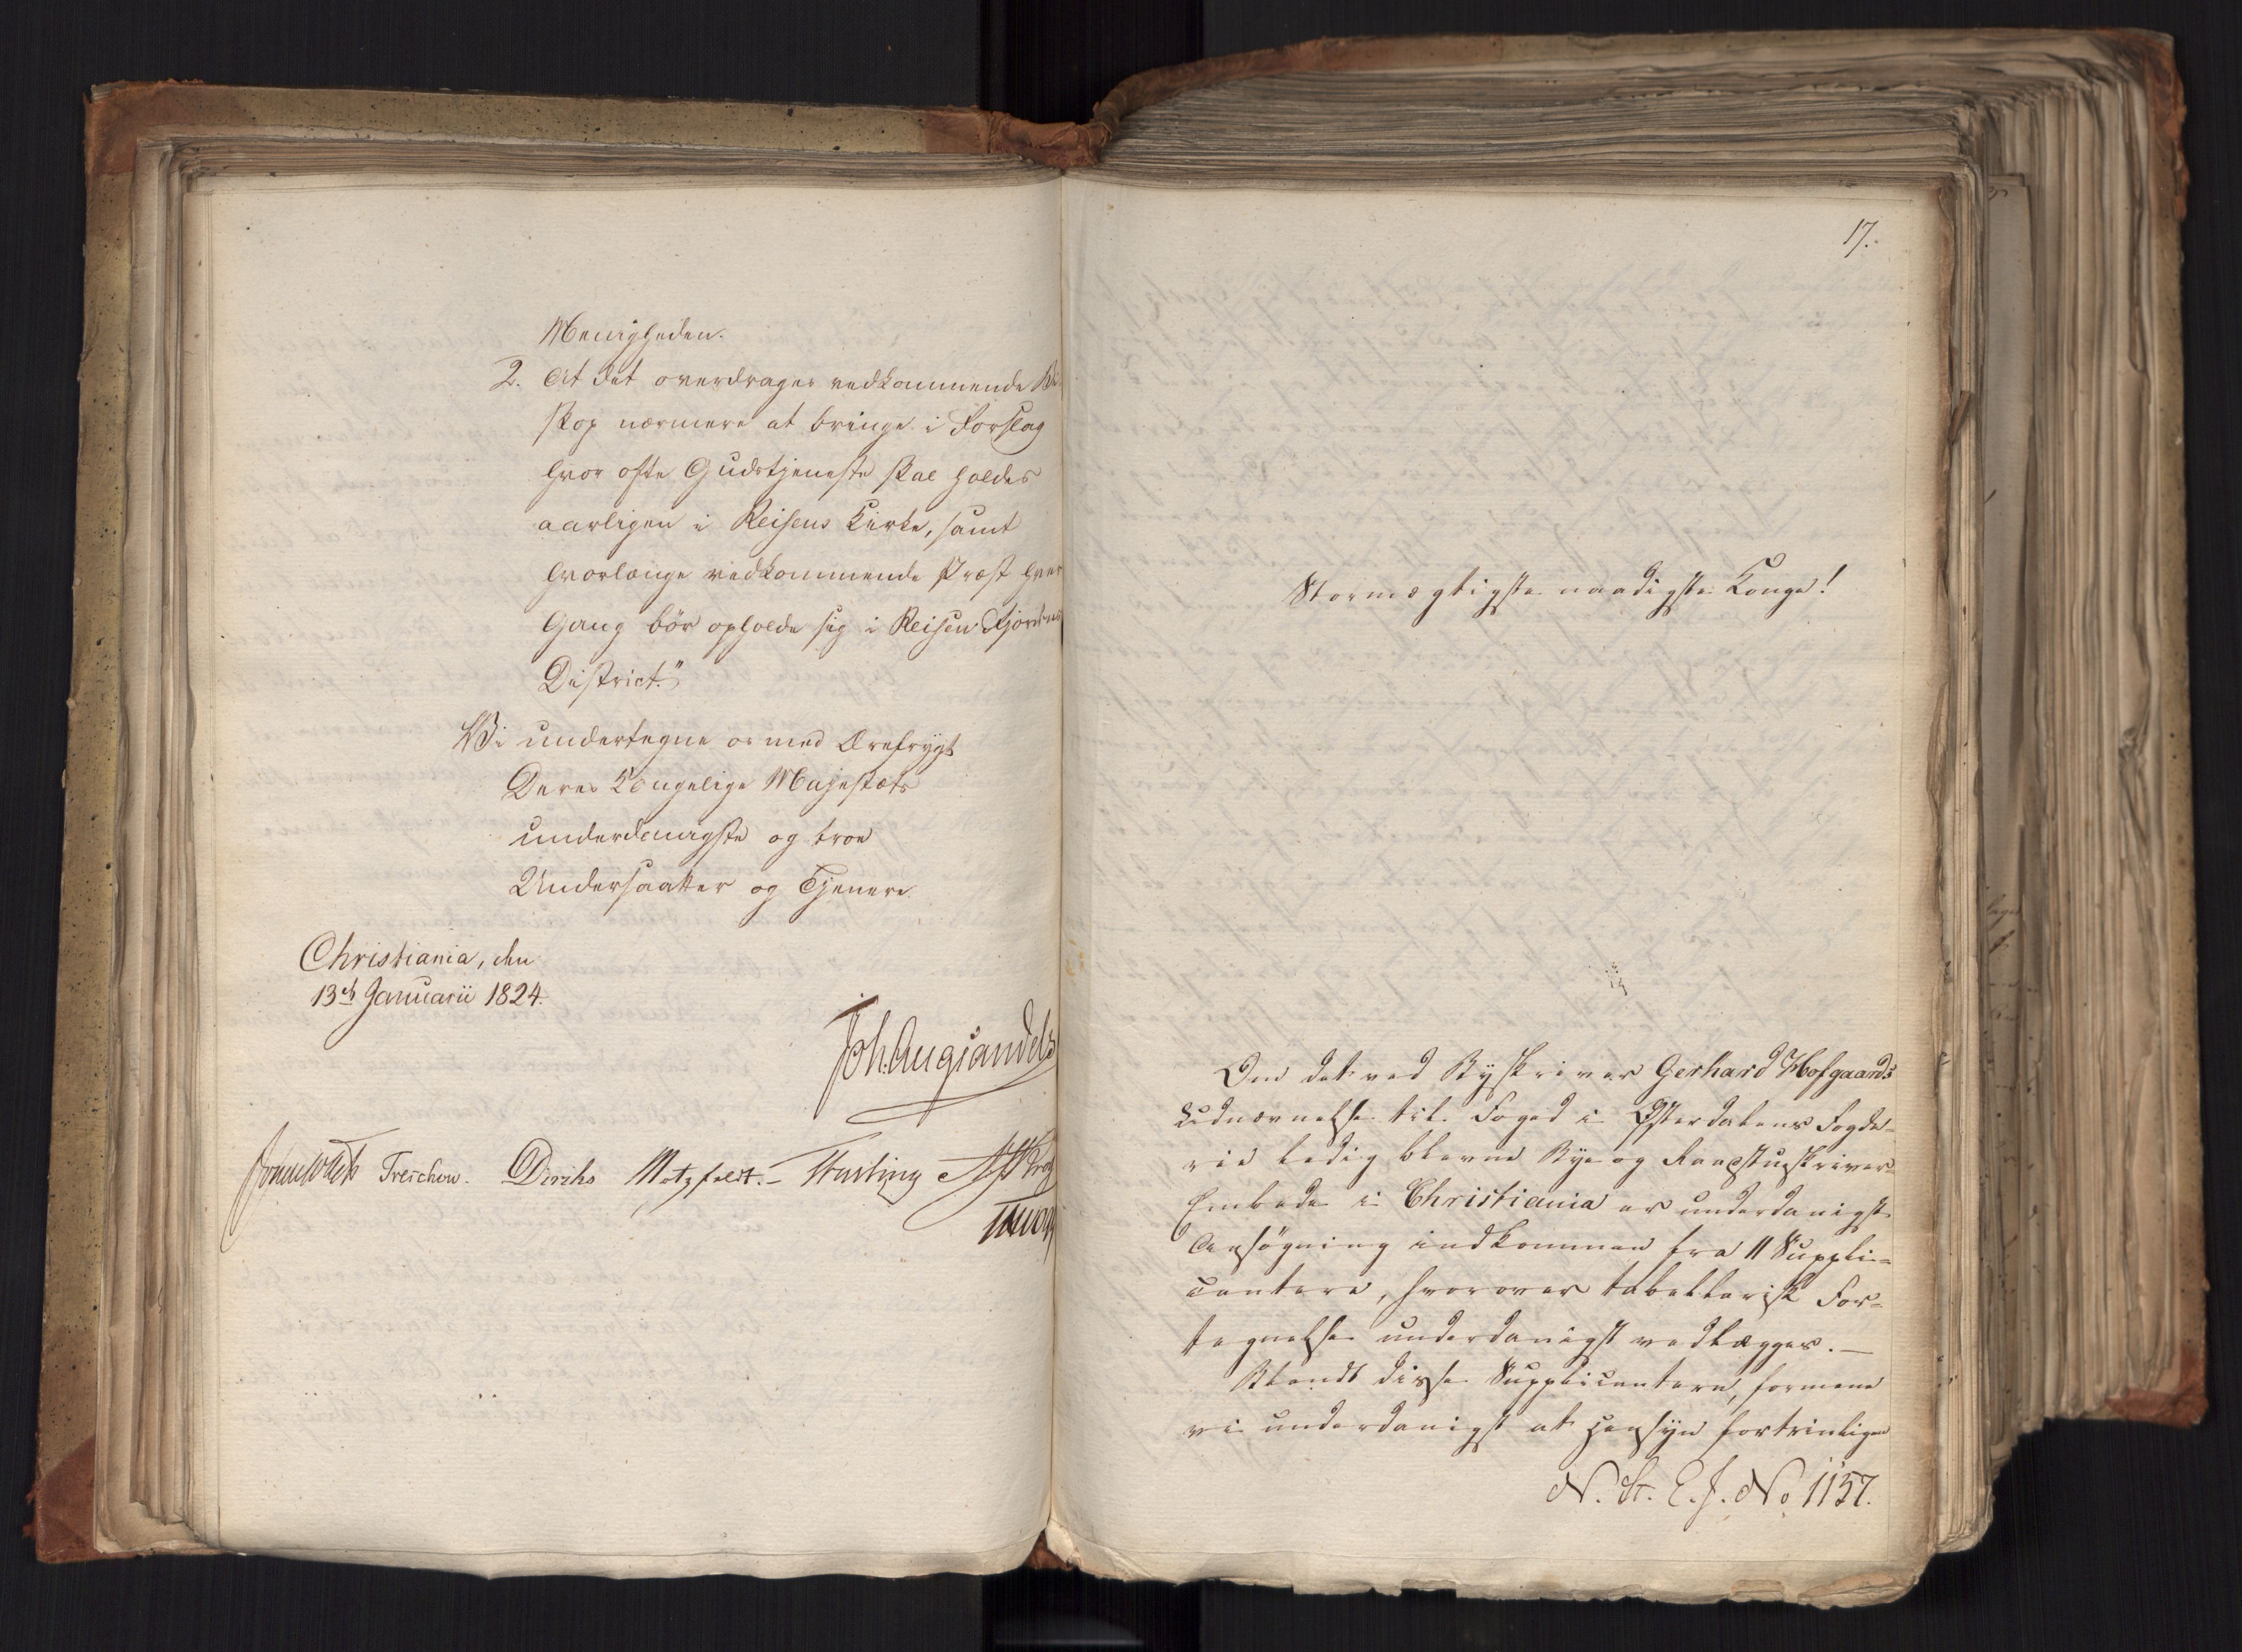 Menigheden.
2. At det overdrages vedkommende Bi
skop nærmere at bringe i Forslag
hvor ofte Gudstjeneste skal holdes
aarligen i Reisens Kirke, samt
hvorlænge vedkommende Præst hver
Gang bör opholde sig i Reisen Fjordens
District."
Vi undertegne os med Ærefrygt
Deres Kongelige Majestæts
underdanigste og troe
Undersaatter og Tjenere.
Christiania, den
13de Januarii 1824.
Joh. Aug Sandels
Treschow. Diriks Motzfeldt. - Fasting
17.
Stormægtigste naadigste Konge!
Om det ved Byskriver Gerhard Hofgaards
Udnævnelse til Foged i Østerdalens Fogde-
rie ledig blevne Bye og Raadstueskriver-
Embede i Christiania er underdanigst
Ansögning indkommen fra 11 Suppli-
cantere, hvorover tabellarisk For-
tegnelse underdanigst vedlægges. —
Blandt disse Supplicantere, formene
vi underdanigst at Hensyn fortrinligen
N. St. E. J. No 1157.